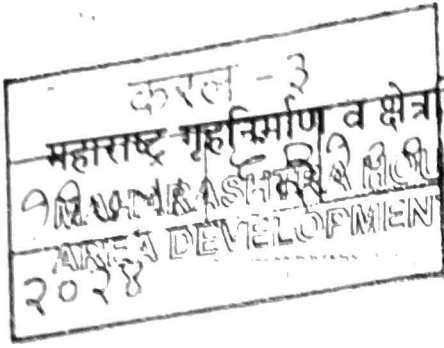 करल - ३
महाराष्ट्र गृहनिर्माण व क्षेत्र
MAHARASHTRA HOU
AREA DEVELOPMEN
२०२४